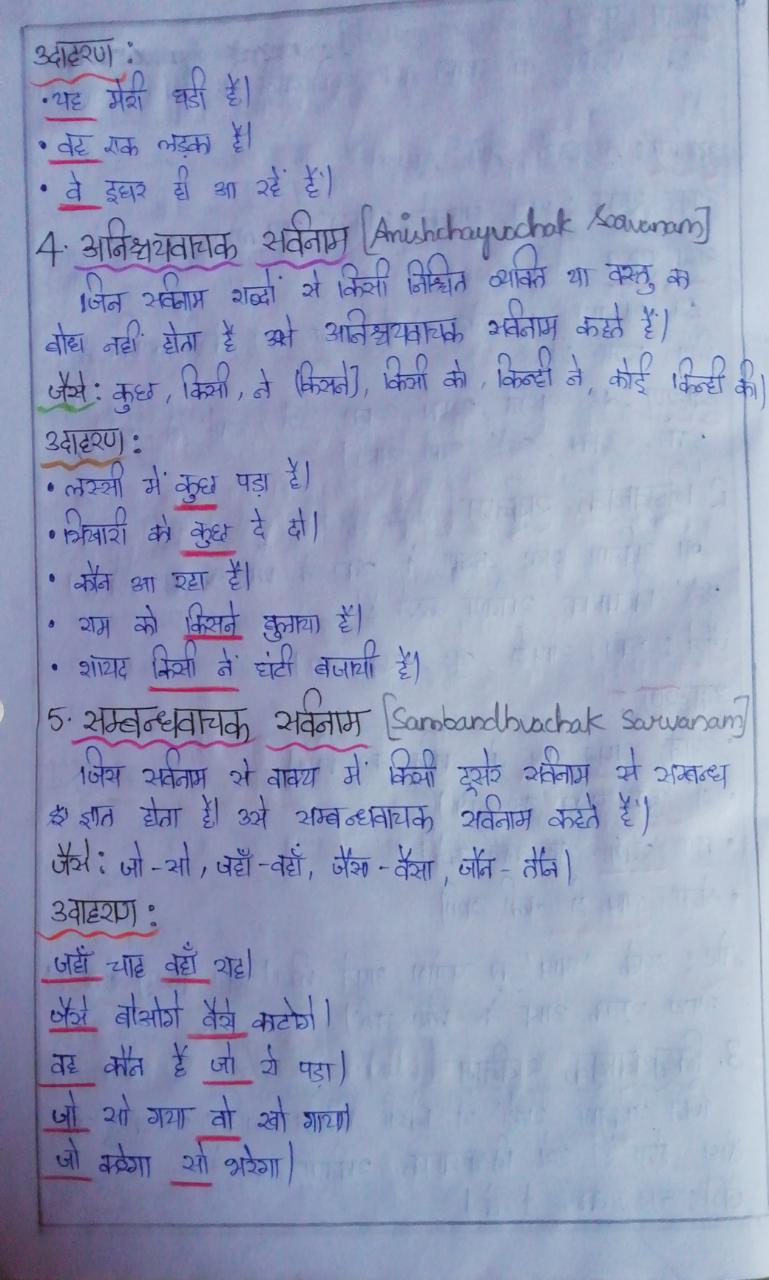 उदाहरण :
• यह मेरी घडी है।
• वह एक लड़का है।
• वे इधर ही आ रहें हैं।
4. अनिश्चयवाचक सर्वनाम [Anishchayvachak Sarvanam]
जिन सर्वनाम शब्दों से किसी निश्चित व्यक्ति या वस्तु क
बोध नहीं होता है उसे अनिश्चयवाचक सर्वनाम कहते हैं।
जैसे : कुछ , किसी , ने (किसने], किसी को , किन्ही ने , कोई किन्ही की)
उदाहरण :
• लस्सी में कुछ पड़ा है।
• भिखारी को कुछ दे दो।
• कौन आ रहा है।
• राम को किसने बुलाया है।
• शायद किसी नें घंटी बजायी है)
5. सम्बन्धवाचक सर्वनाम [Sambandhvachak Sarvanam]
जिस सर्वनाम से वाक्य में किसी दूसरे सर्वनाम से सम्बन्ध
ज्ञात होता है। उसे सम्बन्धवाचक सर्वनाम कहते हैं)
जैसे : जो - सो , जहाँ - वहाँ, जैसा - वैसा , जौन - तौन)
उदाहरण :
जहाँ चाह वहाँ राह।
जैसे बोओगे वैसे काटोगे।
वह कौन है जो रो पड़ा)
जो सो गया वो खो गया।
जो करेगा सो भरेगा)